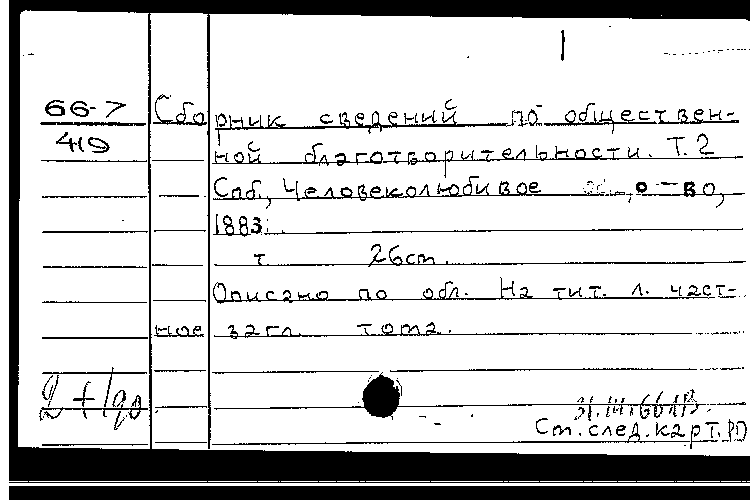 66-7 Сборник сведений по обществен-
419 ной благотворительности. Т. 2
Спб., Человеколюбивое о-во,
1883.
т. 26см.
Описано по обл. На тит. л. част-
ное загл. тома.
Ст. след. карт.